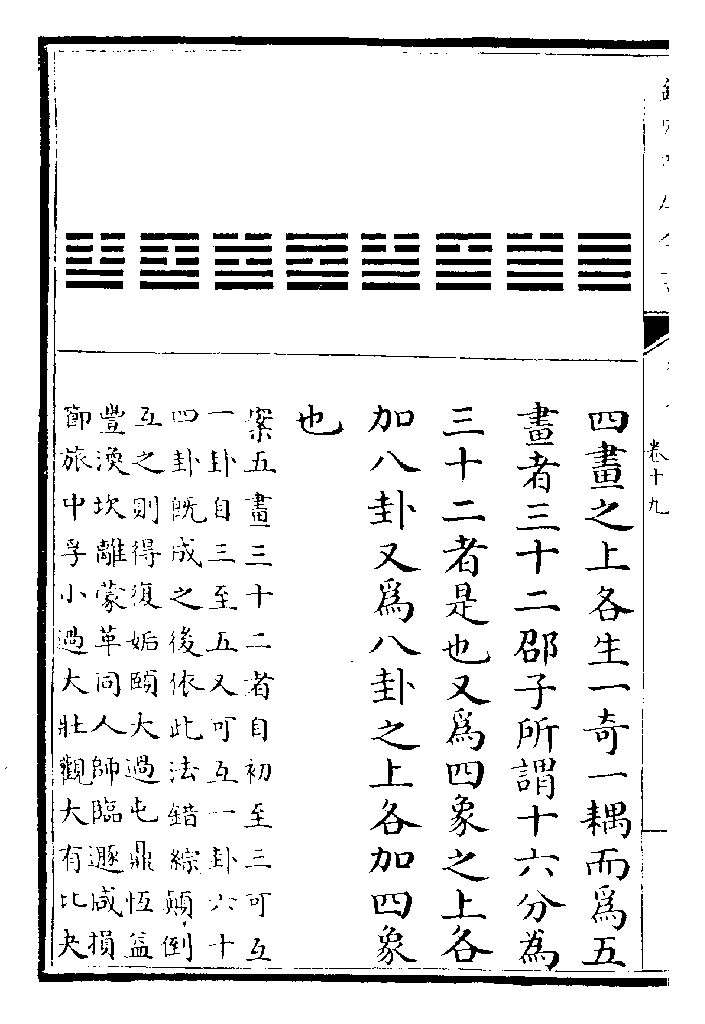 卷十九
四畫之上各生一奇一耦而爲五
畫者三十二邵子所謂十六分為
三十二者是也又爲四象之上各
加八卦又爲八卦之上各加四象
也
案五畫三十二者自初至三可互
一卦自三至五又可互一卦六十
四卦旣成之後依此法錯綜顛倒
互之則得復姤頤大過屯鼎恆益
豐渙坎離蒙革同人師臨遯咸損
節旅中孚小過大壯觀大有比夬